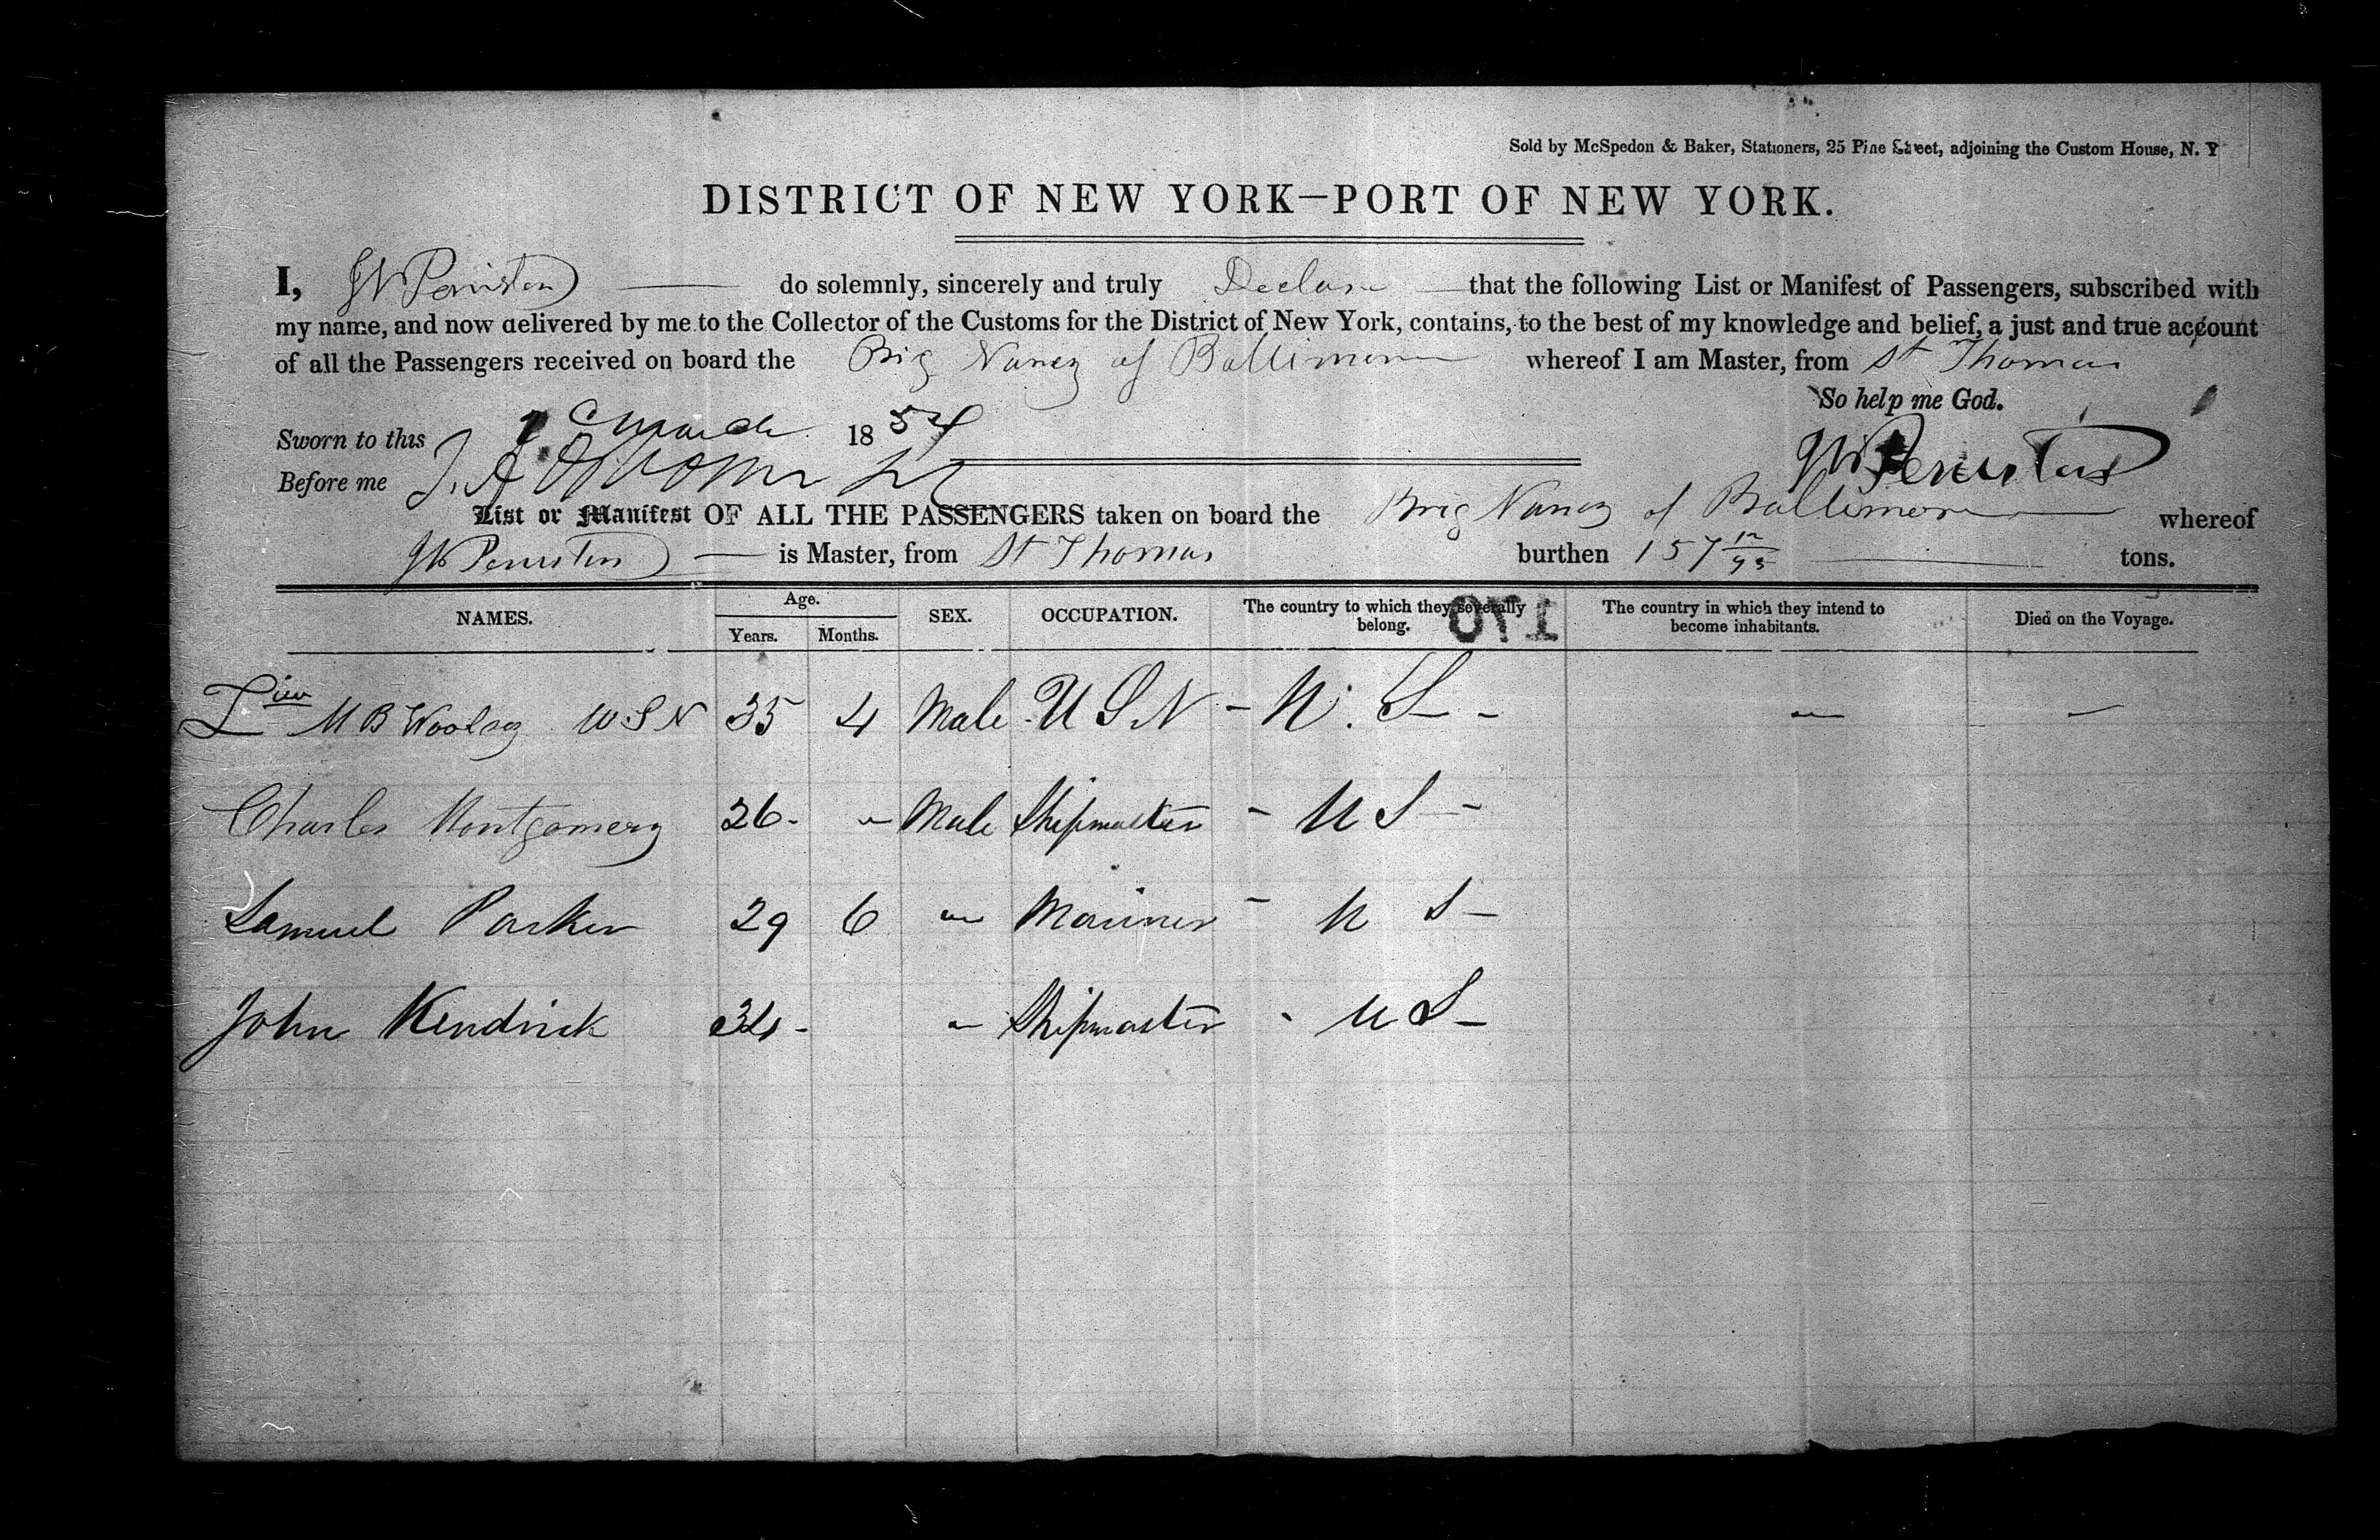 Sold by McSpedon & Baker, Stationers, 25 Pine Street, adjoining the Custom House, N. Y
DISTRICT OF NEW YORK—PORT OF NEW YORK.
I, JW Peniston do solemnly, sincerely and truly Declare that the following List or Manifest of Passengers, subscribed with
my name, and now delivered by me to the Collector of the Customs for the District of New York, contains, to the best of my knowledge and belief, a just and true account
of all the Passengers received on board the Brig Nancy of Baltimore whereof I am Master, from St Thomas
So help me God.
Sworn to this March 1854
Before me
JW Peniston
List or Manifest OF ALL THE PASSENGERS taken on board the Brig Nancy of Baltimore whereof
JW Peniston is Master, from St Thomas burthen 157 12/95 tons.
NAMES. Age. Years. Months. SEX. OCCUPATION. The country to which they severally belong. The country in which they intend to become inhabitants. Died on the Voyage.
170
Lieu M B Woolsey USN 35 4 Male - U S N - U. S - — —
Charles Montgomery 26 - " Male Shipmaster - U S -
Samuel Parker 29 6 " Mariner - U S -
John Kendrick 34 - " Shipmaster - U S -